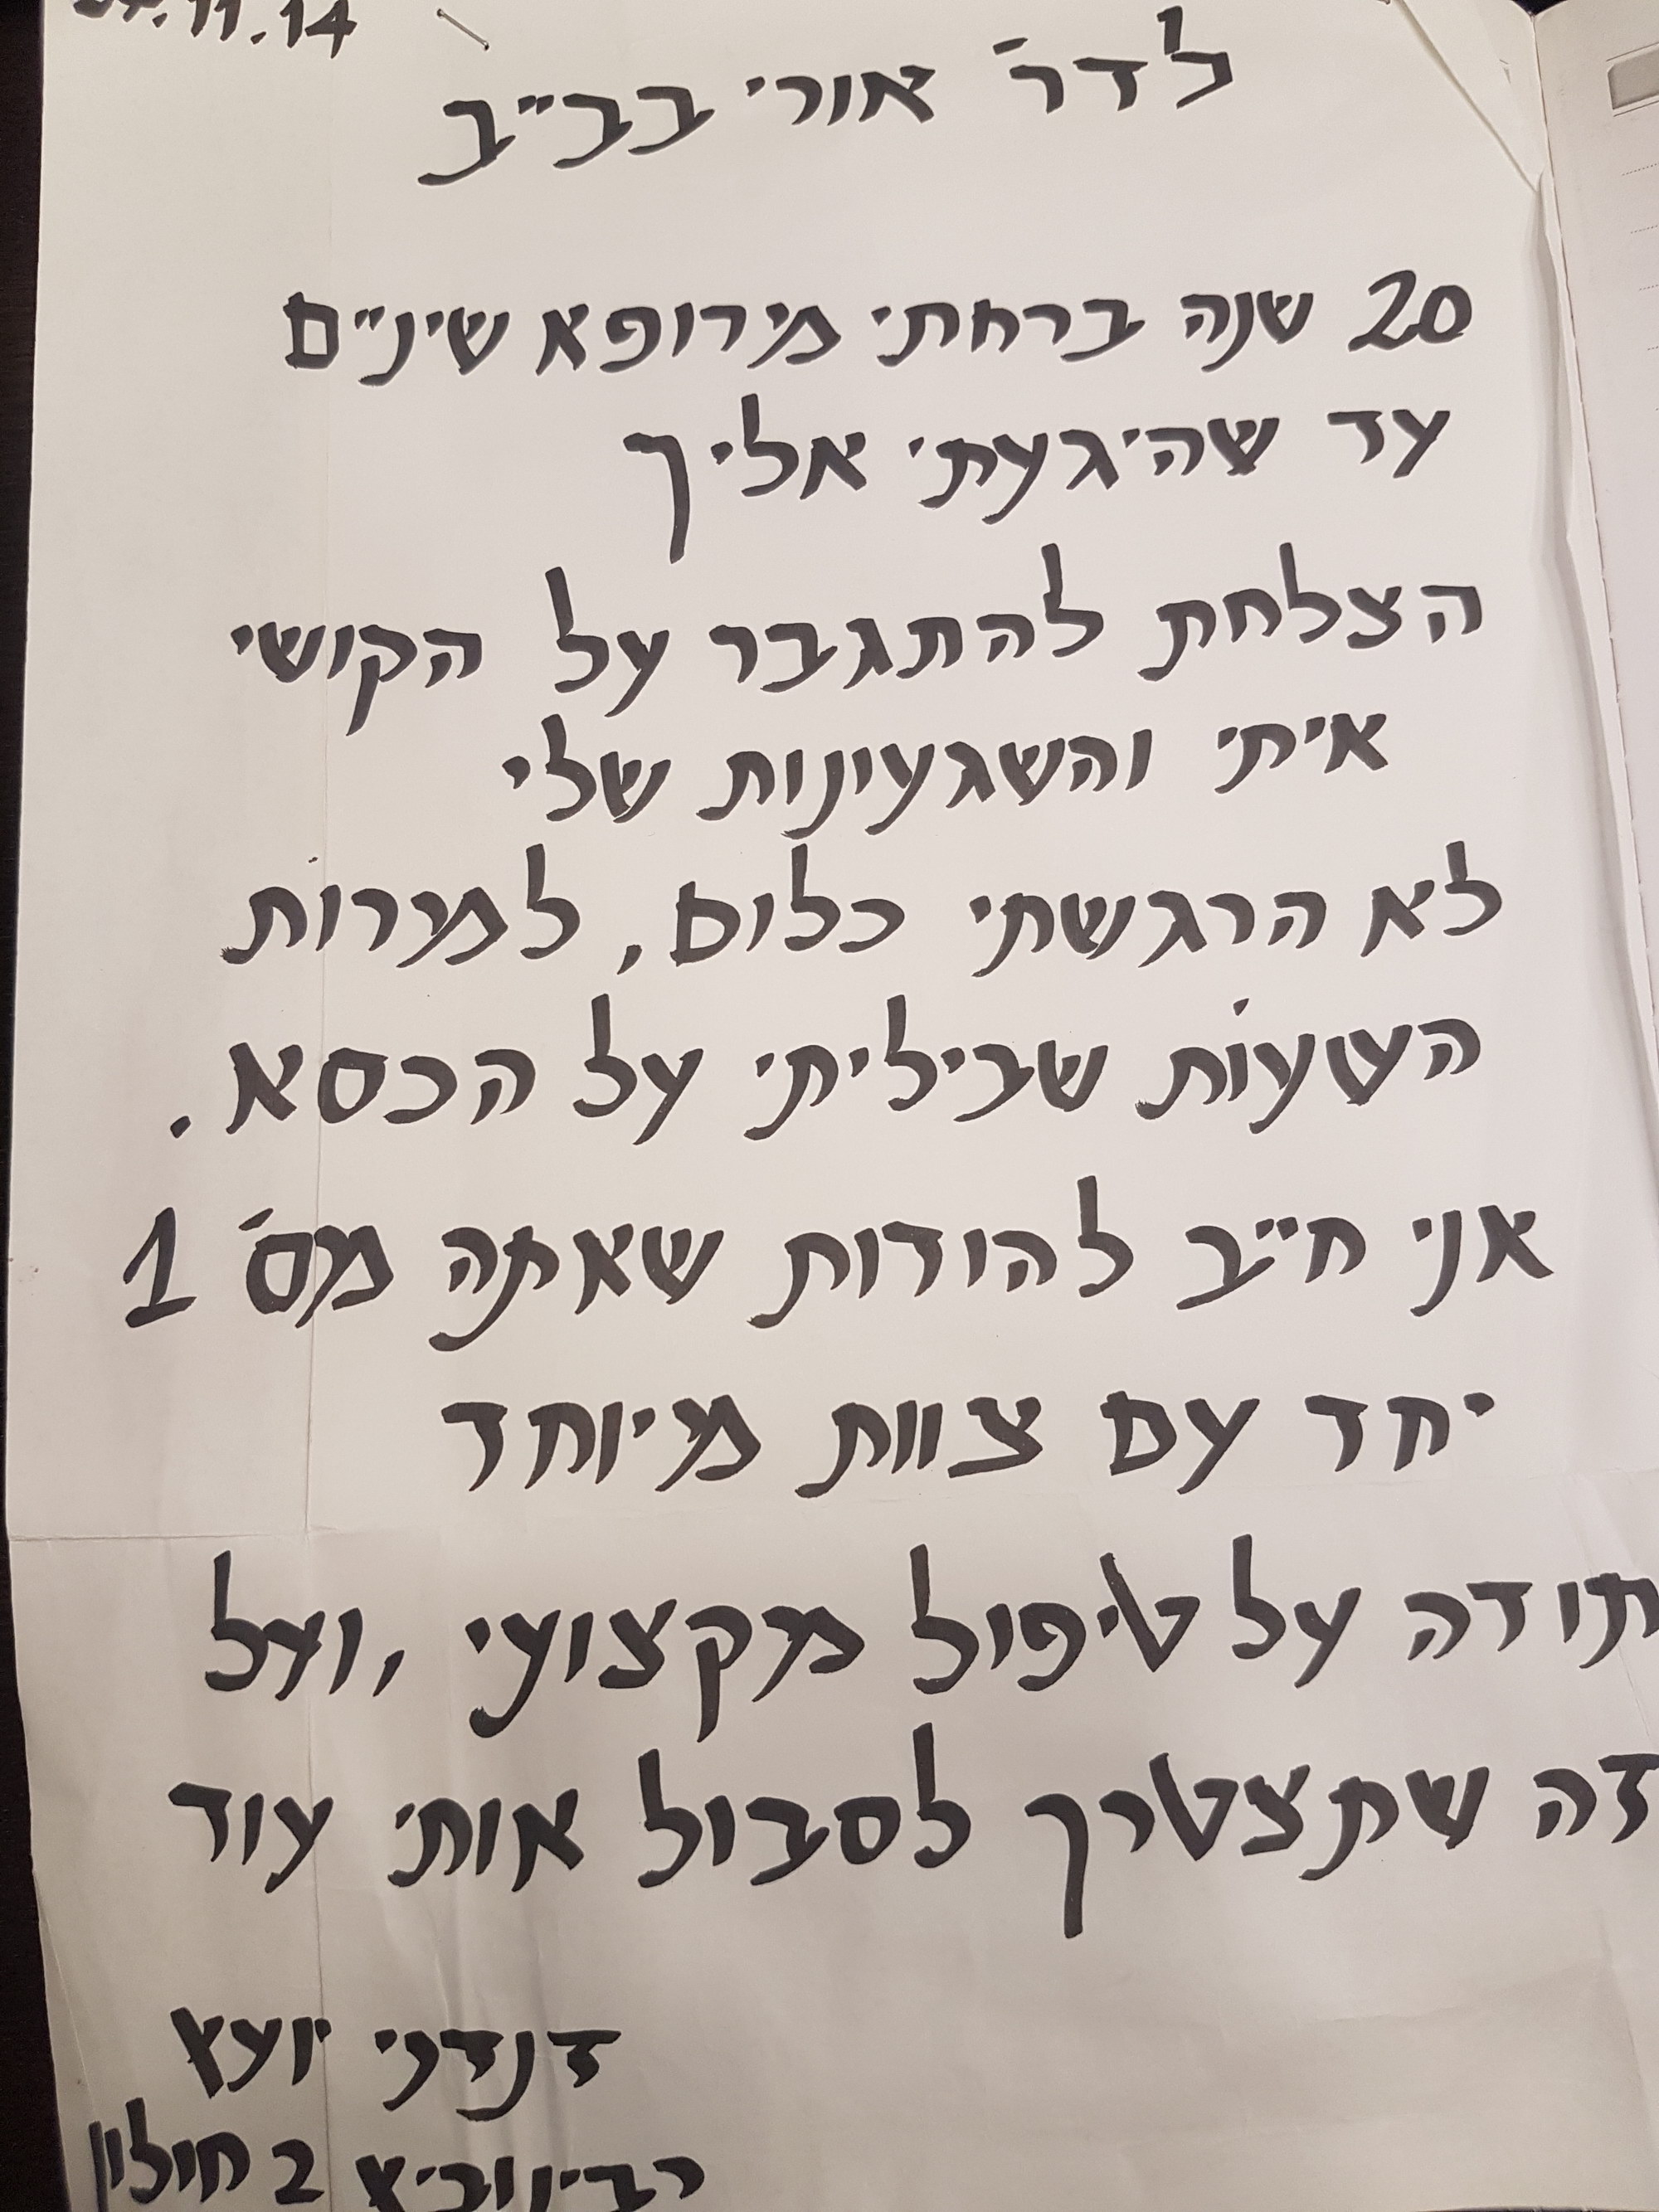 .11.14
לדר' אורי בב"ב
20 שנה ברחתי מירופא שיניים
עד שהיגעתי אליך
הצלחת להתגבר על הקושי
איתי והשגעינות שלי
לא הרגשתי כלום, למרות
השעות שביליתי על הכסא.
אני חייב להודות שאתה מס' 1
יחד עם צוות מיוחד
תודה על טיפול מקצועי, ועל
זה שתצטרך לסבול אותי עוד
יועץ
רבינוביץ 2 חולון